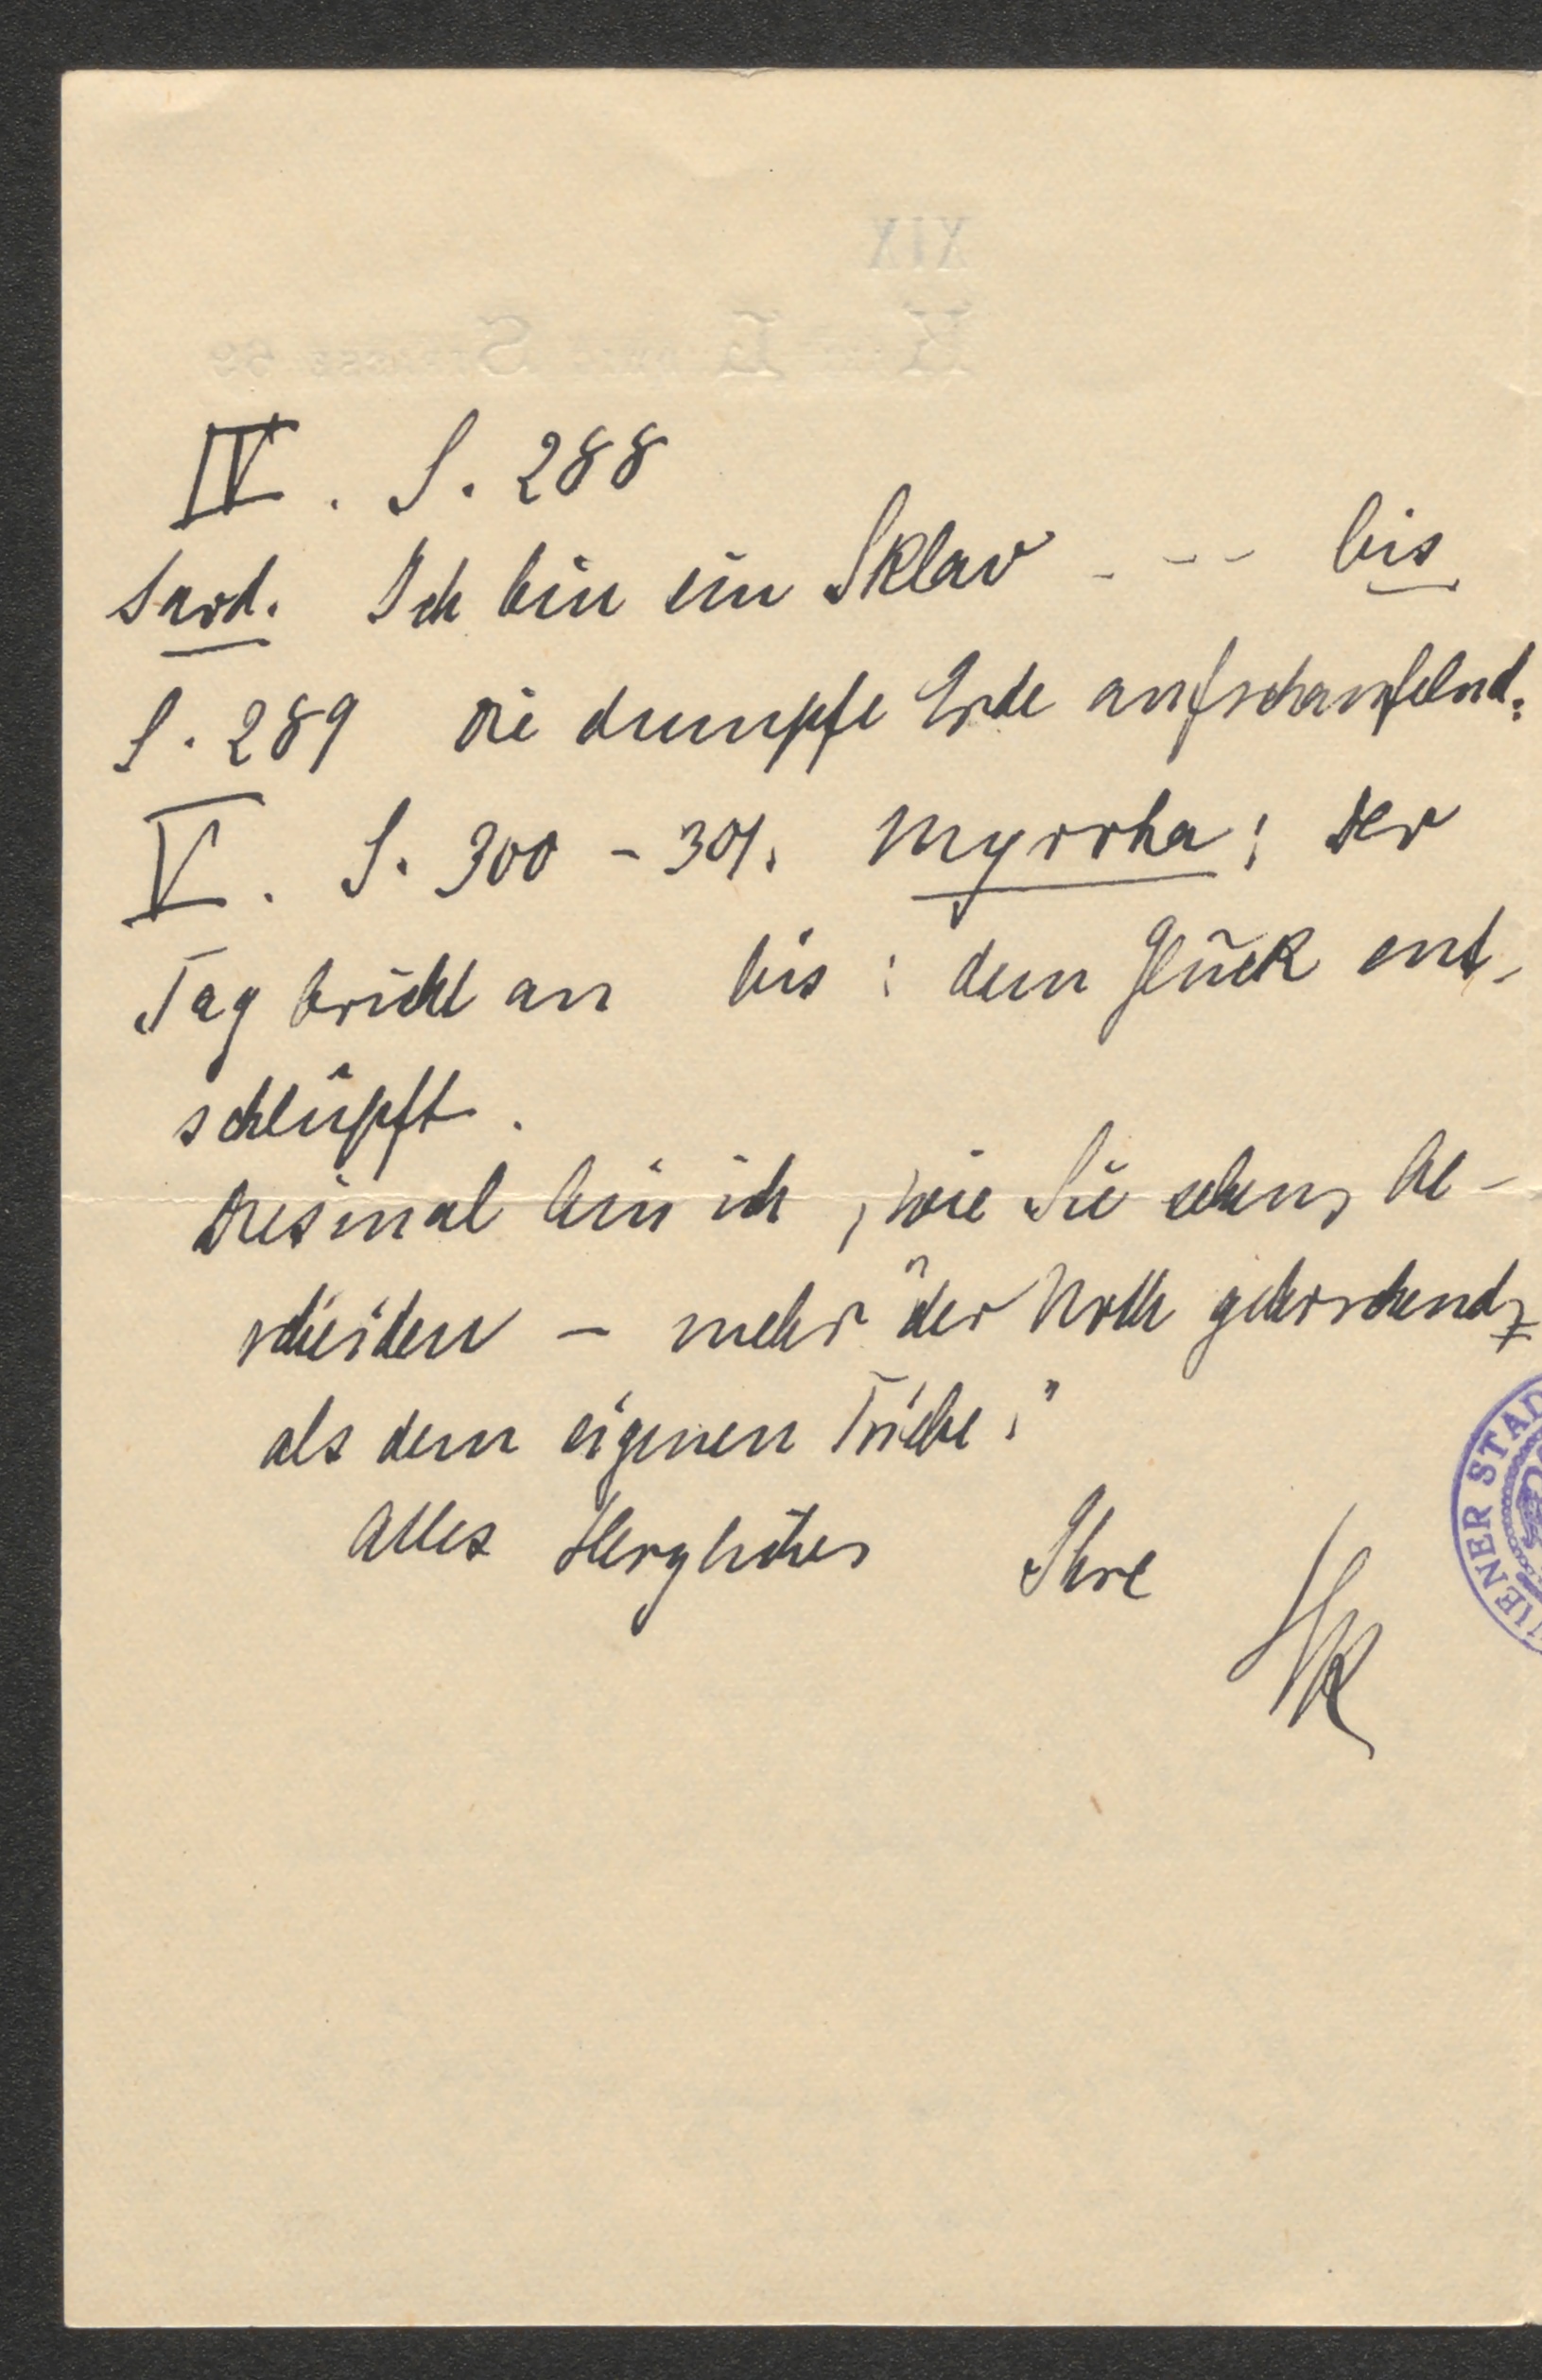 IV. S. 288
Sard. Ich bin ein Sklav - - - bis
S. 289 die dumpfe Erde aufschaufelnd.
V. S. 300 - 301. Myrrha: Der
Tag bricht an bis: dem Glück ent-
schlüpft.
Diesmal bin ich, wie Sie sehen, be-
scheiden - mehr "der Noth gehorchend,
als dem eigenen Triebe."
Alles Herzliche Ihre
HK
IENER STAD